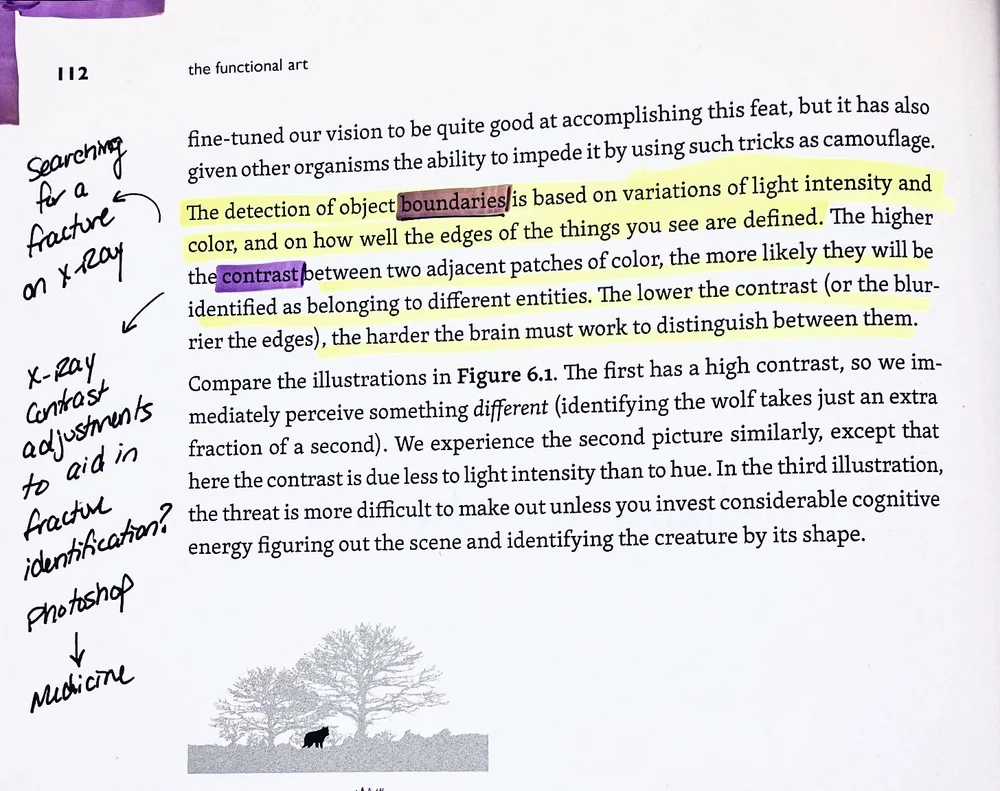 112
the functional art
fine-tuned our vision to be quite good at accomplishing this feat, but it has also
given other organisms the ability to impede it by using such tricks as camouflage.
The detection of object boundaries is based on variations of light intensity and
color, and on how well the edges of the things you see are defined. The higher
the contrast between two adjacent patches of color, the more likely they will be
identified as belonging to different entities. The lower the contrast (or the blur-
rier the edges), the harder the brain must work to distinguish between them.
Compare the illustrations in Figure 6.1. The first has a high contrast, so we im-
mediately perceive something different (identifying the wolf takes just an extra
fraction of a second). We experience the second picture similarly, except that
here the contrast is due less to light intensity than to hue. In the third illustration,
the threat is more difficult to make out unless you invest considerable cognitive
energy figuring out the scene and identifying the creature by its shape.
Searching
for a
fracture
on X-Ray
X-Ray
Contrast
adjustments
to aid in
fracture
identification?
Photoshop
Medicine